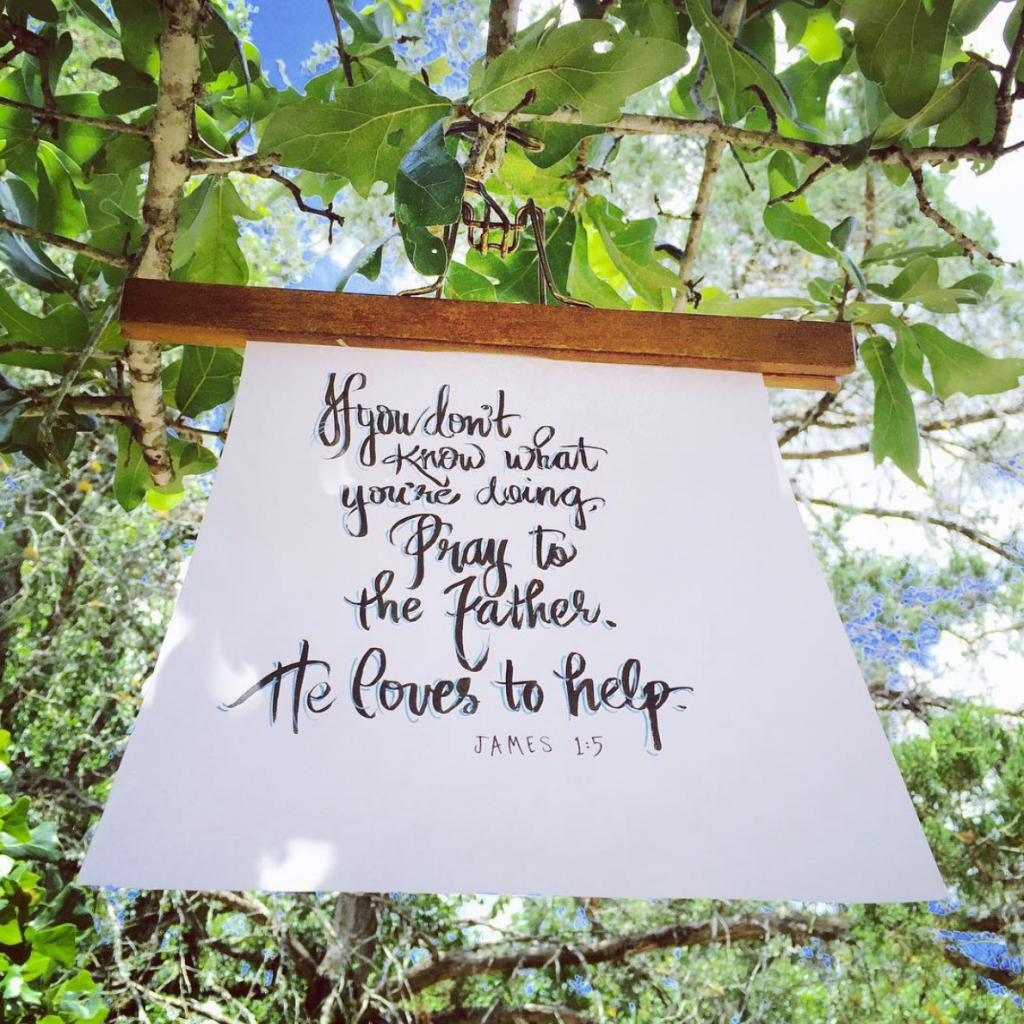 If you don't
know what
you're doing,
Pray to
the Father.
He loves to help.
JAMES 1:5